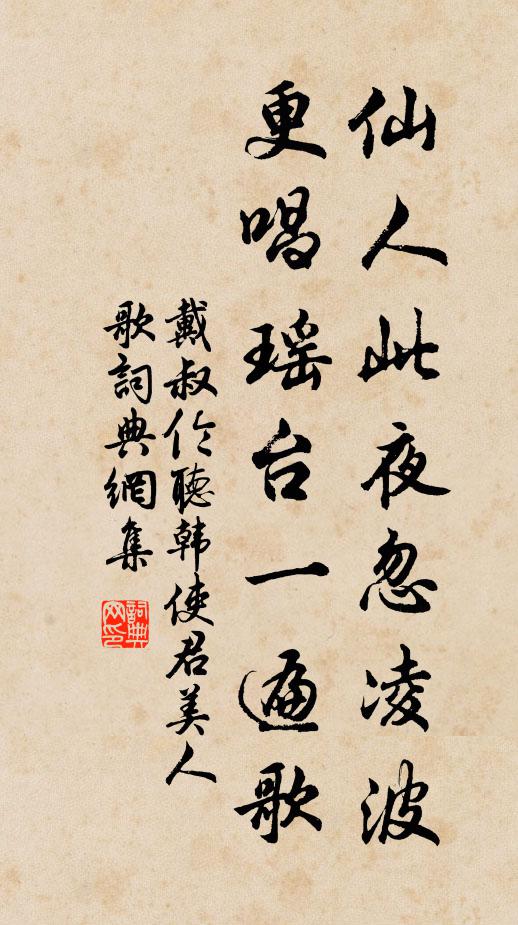 仙人此夜忽凌波
更唱瑶台一遍歌
戴叔伦聽韩使君美人
歌詞典網集
詞典网印